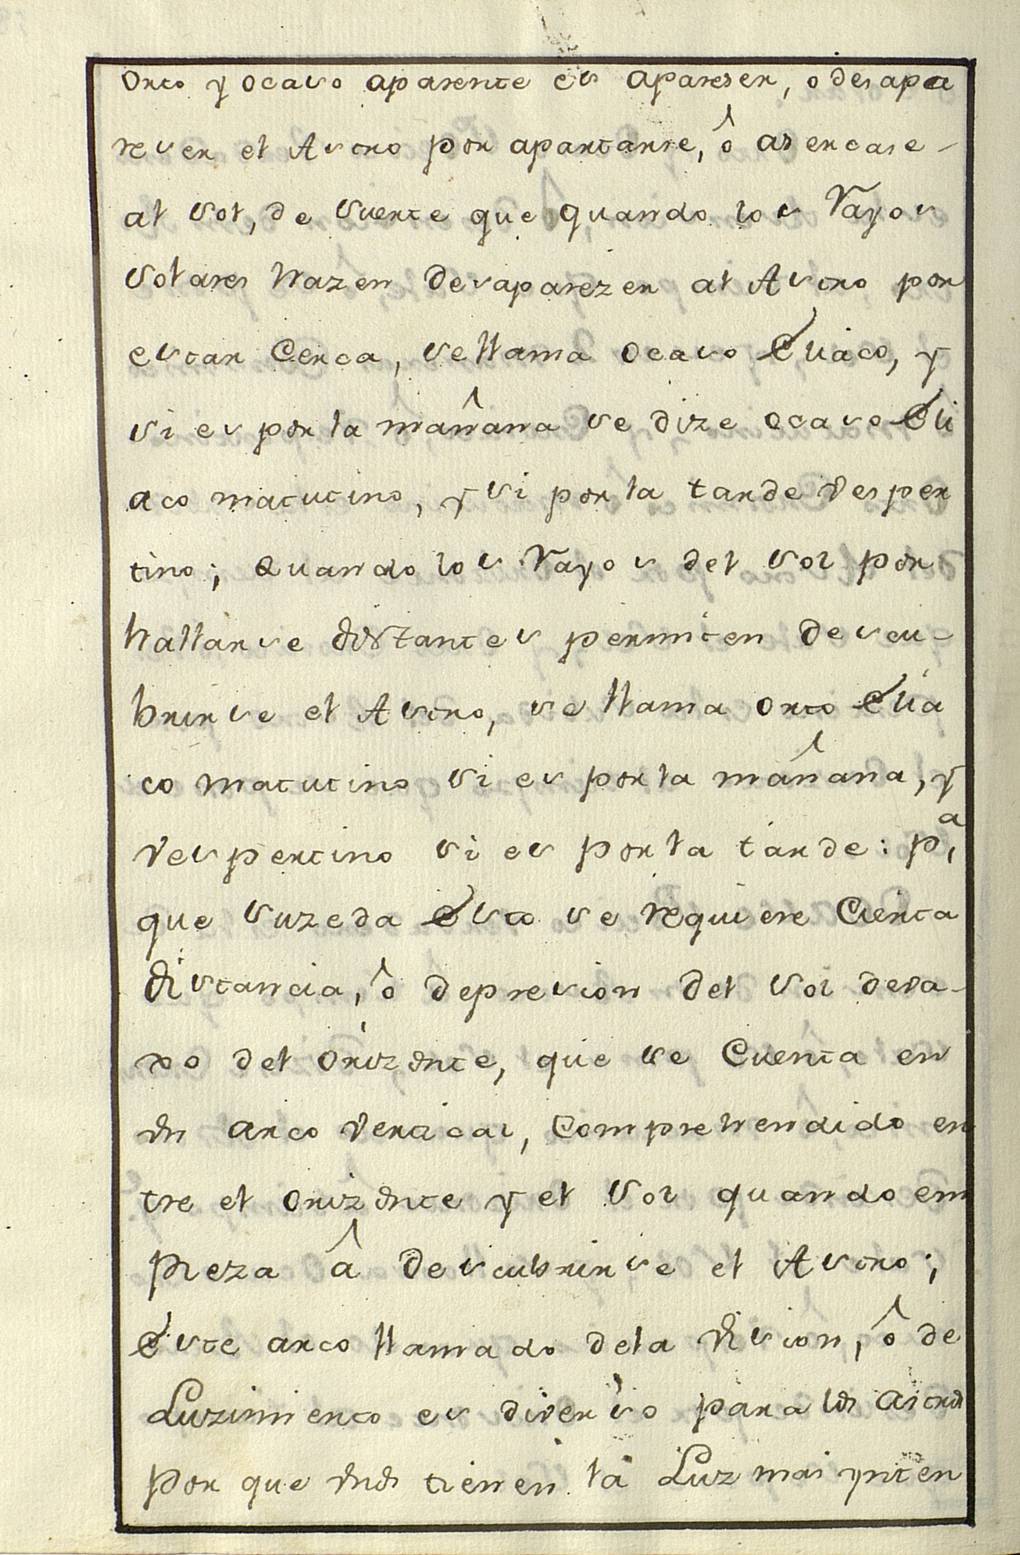 Orto y ocaso aparente es apareser, o desapa
reser el Astro por apartarse, ô asercase-
al Sol, de Suerte que quando los Rayos
Solares hazen desaparezer al Astro por
estar Cerca, se llama Ocaso Eliaco, y
si es por la mañana se dize Ocaso Eli
aco matutino, y si por la tarde Vesper
tino; Quando los Rayos del Sol por
hallarse distantes permiten descu-
brirse el Astro, se llama Orto Elia
co matutino si es por la mañana, y
Vespertino si es por la tarde: pª,
que Suzeda Esto se requiere Cierta
distancia, ô depresion del Sol deva-
xo del Orizonte, que se Cuenta en
Vn arco Vertical, Comprehendido en
tre el Orizonte y el Sol quando em
pieza â descubrirse el Astro;
Este arco llamado dela Vision, ô de
Luzimiento es diverso para los astros
Por que Vnos tienen la Luz mas ynten